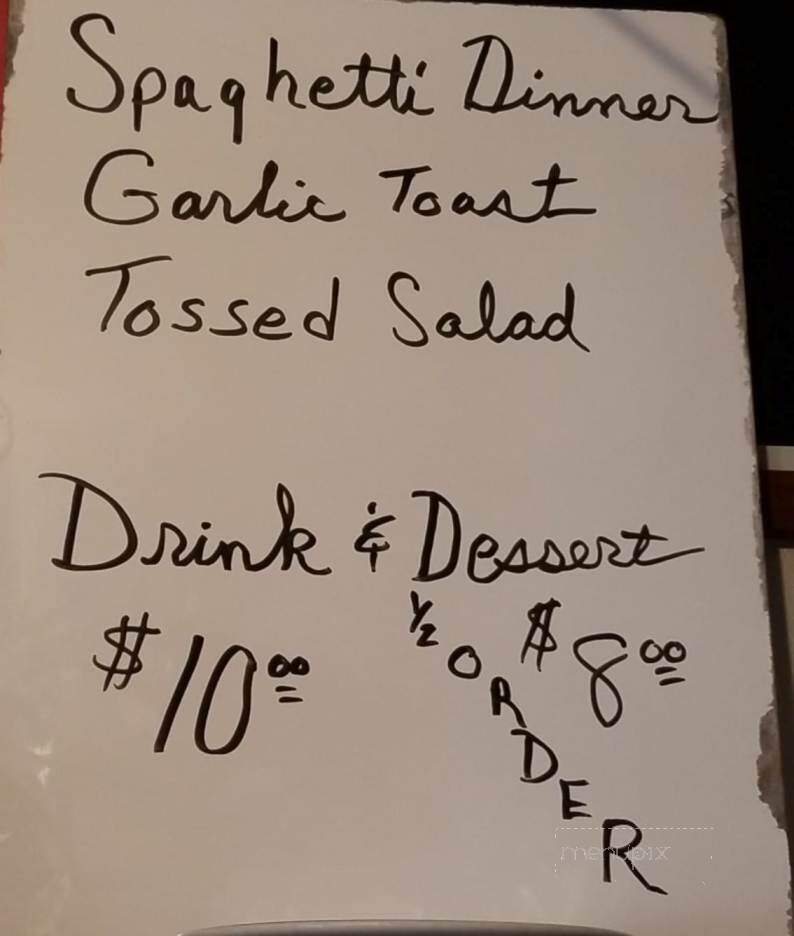 Spaghetti Dinner
Garlic Toast
Tossed Salad
Drink & Dessert
$10.00
1/2 ORDER
$8.00
menupix